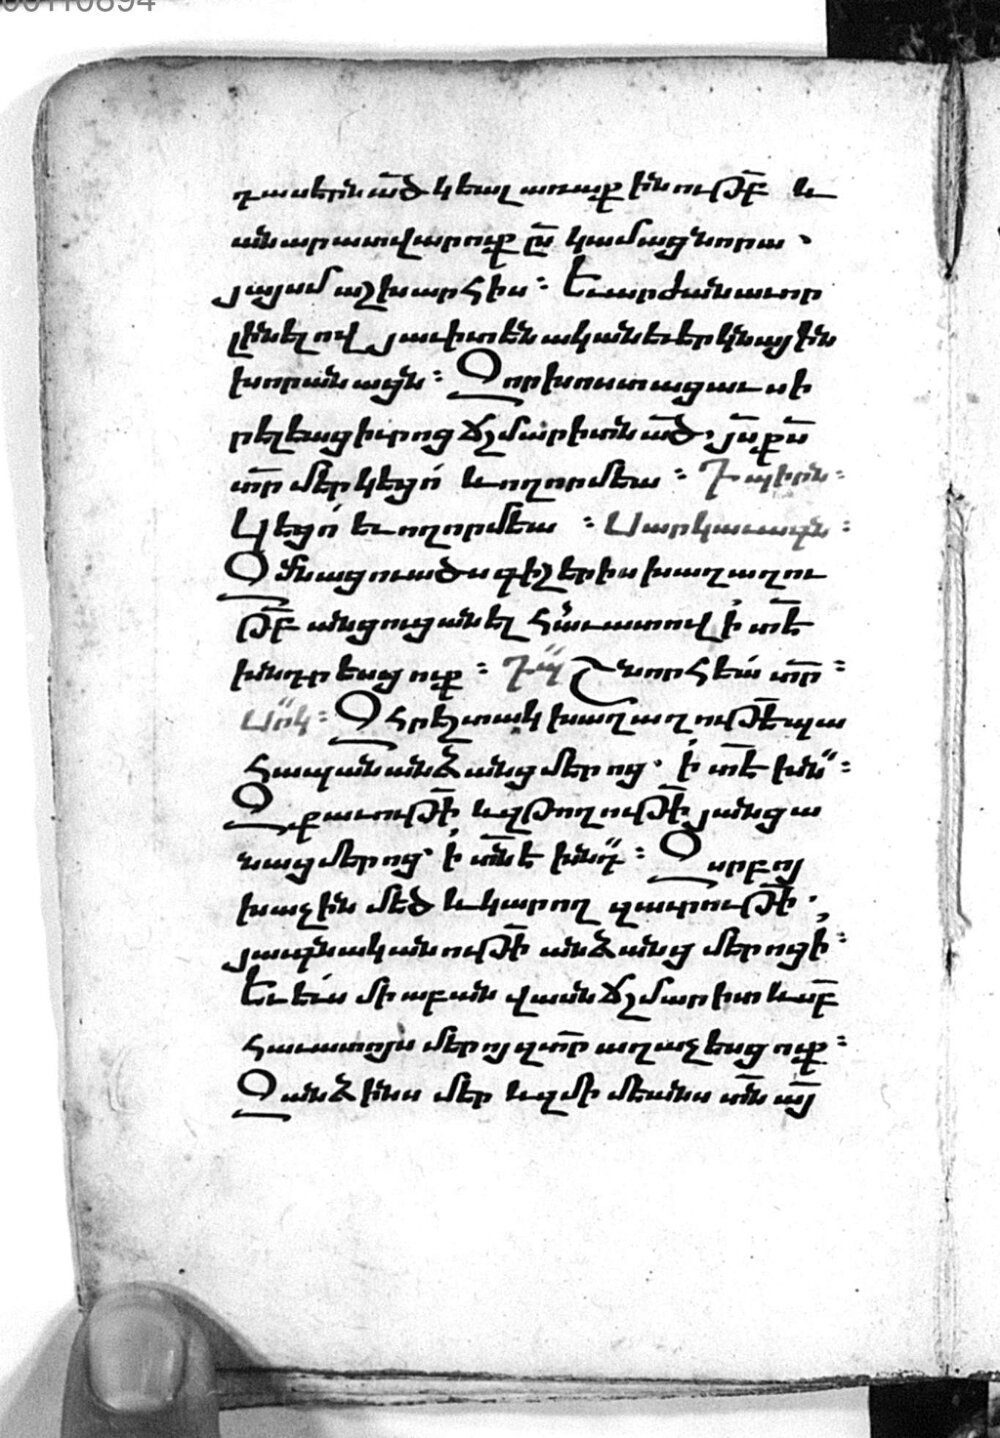 դասեցն ած կեալ առաքինութբ և
անարատվարուք ըն կամացնորա ՝
յայսմ աշխարհիս ։ Եւարժանաւոր
լինելով յաւիտենականևերկնային
խորանացն ։ Զորխոստացաւ սի
րելեացիւրոց ճշմարիտն ած յս քս
տր մերկեցո́ ևողորմեա ։ Դպիրն ։
Կեցո́ ևողորմեա́ ։ Սարկաւագն ։
Զմնացուածս գիշերիս խաղաղու
թբ անցուցանել հաւատով ի տէ
խնդրեսցուք ։ Դպ Շնորհեա́ տր ։
Սրկ ։ Զհրեշտակ խաղաղութէ պա
հապանանձանցմերոց ՝ ի տէ խն ։
Զքաւութի ևզթողութի յանցա
նացմերոց ՝ ի տնէ խնդ ։ Զսրբոյ
խաչին մեծ ևկարող զաւրութի ՝
յաւգնականութի անձանց մերոցի ։
Եւևս միաբան վասն ճշմարիտ ևսբ
հաւատոյս մերոյ զտր աղաչեսցուք ։
Զանձինս մեր ևզմիմեանս տն այ